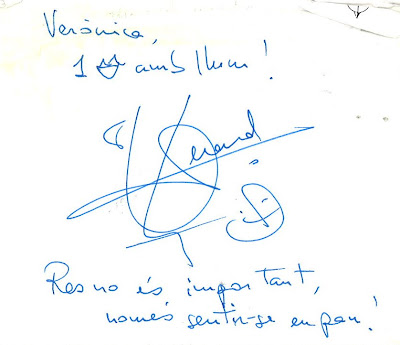 Verònica,
1 amb llum!
Gerard
Res no és important,
només sentir-se en pau!